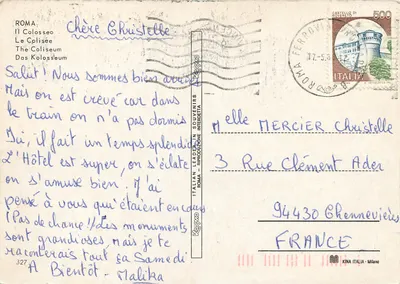 ROMA
Il Colosseo
Le Colisée
The Coliseum
Das Kolosseum
Chère Christelle
Salut! Nous sommes bien arrivés
Mais on est crevé car dans
le train on n'a pas dormis
Ici, il fait un temps splendide
L'Hôtel est super, on s'éclate
on s'amuse bien. J'ai
pensé à vous qu'étaient en cours
(Pas de chance!) les monuments
sont grandioses, Mais je te
raconterais tout ça Samedi
A Bientôt - Malika
327
ITALIAN SEASON SOUVENIRS
ROMA - RIPRODUZIONE INTERDETTA
500
ITALIA
ROMA FERROVIA
Melle MERCIER Christelle
3 Rue Clément Ader
94430 Chennevières
FRANCE
KINA ITALIA - Milano